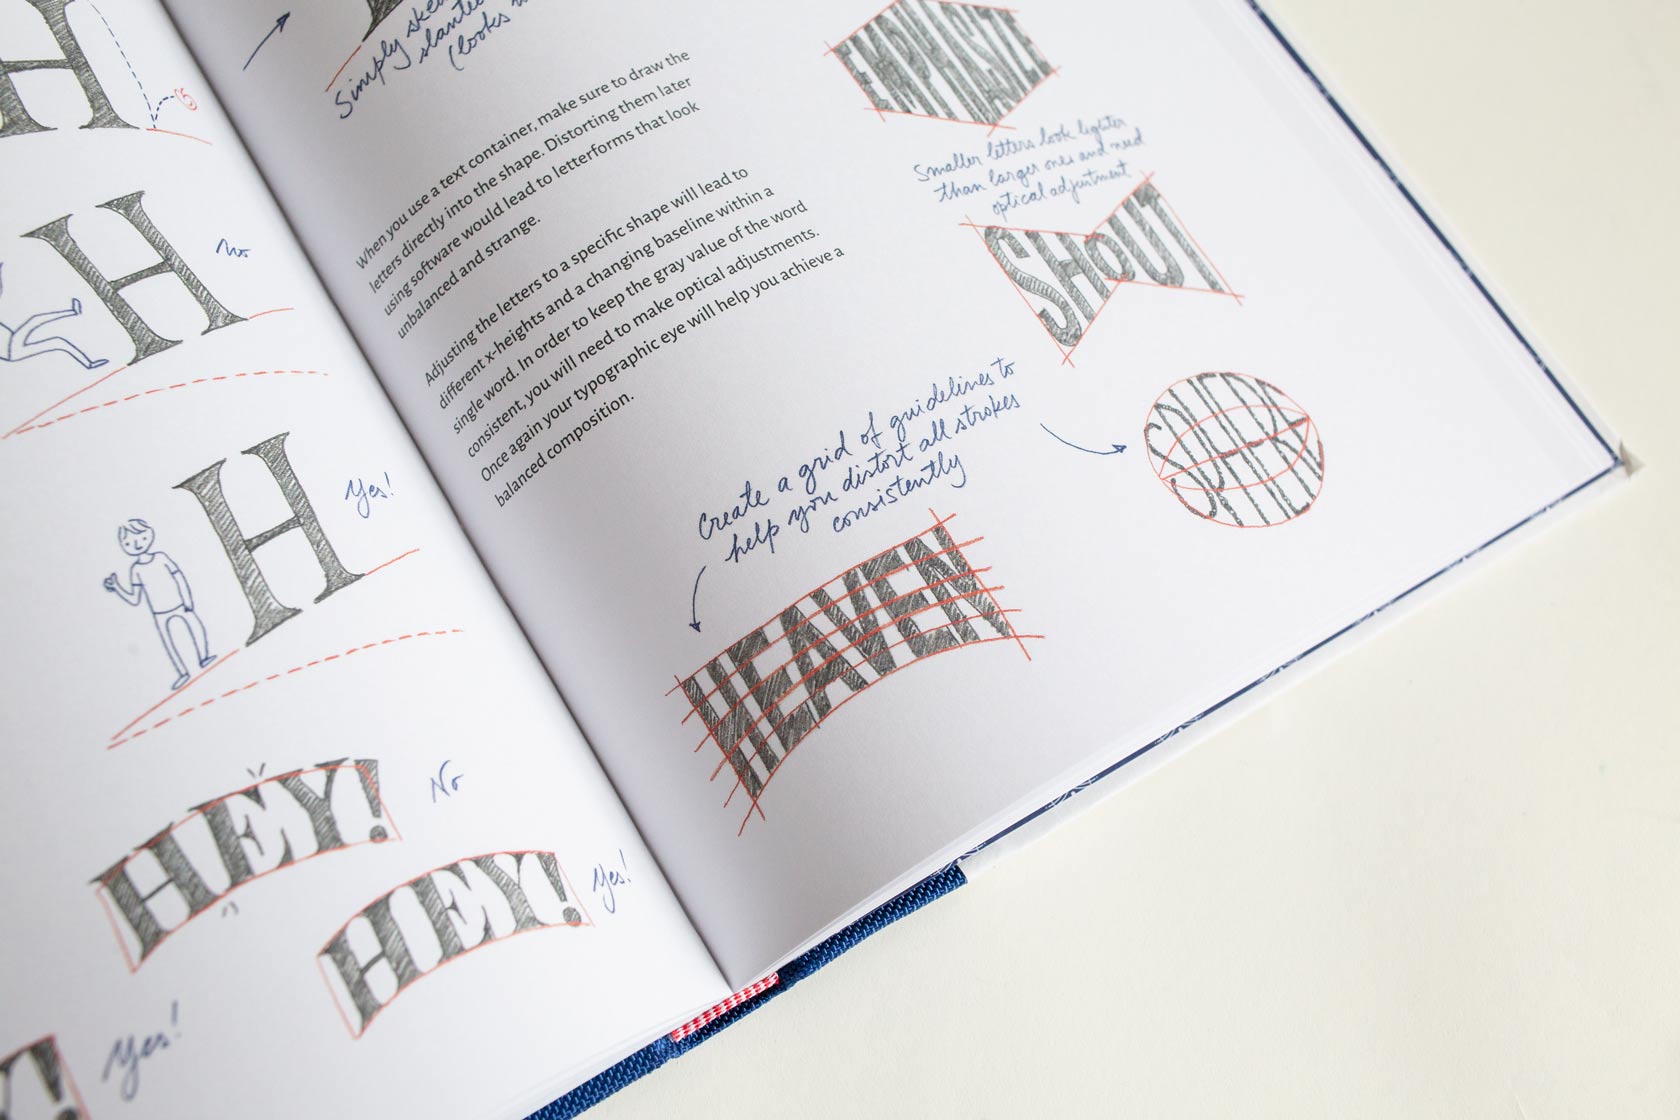 H
5
H
No
H
Yes!
HEY!
No
HEY!
Yes!
Y!
Yes!
Simply
(looks
When you use a text container, make sure to draw the
letters directly into the shape. Distorting them later
using software would lead to letterforms that look
unbalanced and strange.
Adjusting the letters to a specific shape will lead to
different x-heights and a changing baseline within a
single word. In order to keep the gray value of the word
consistent, you will need to make optical adjustments.
Once again your typographic eye will help you achieve a
balanced composition.
EMPHASIZE
Smaller letters look lighter
than larger ones and need
optical adjustment
SHOUT
Create a grid of guidelines to
help you distort all strokes
consistently
SPHERE
HEAVEN